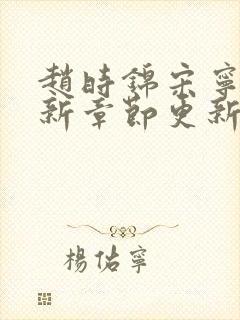 趙時錦宋寧
新章節更新
楊佑寧